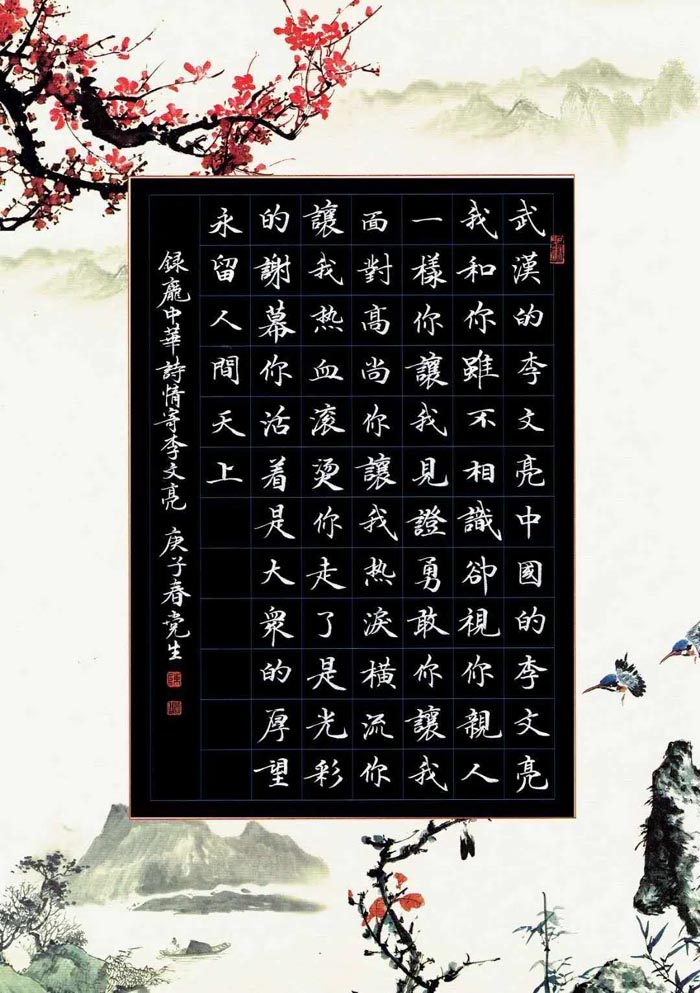 武漢的李文亮中國的李文亮
我和你雖不相識卻視你親人
一樣你讓我見證勇敢你讓我
面對高尚你讓我热淚橫流你
讓我热血滚燙你走了是光彩
的謝幕你活着是大衆的厚望
永留人間天上
録龐中華詩情寄李文亮 庚子春党生